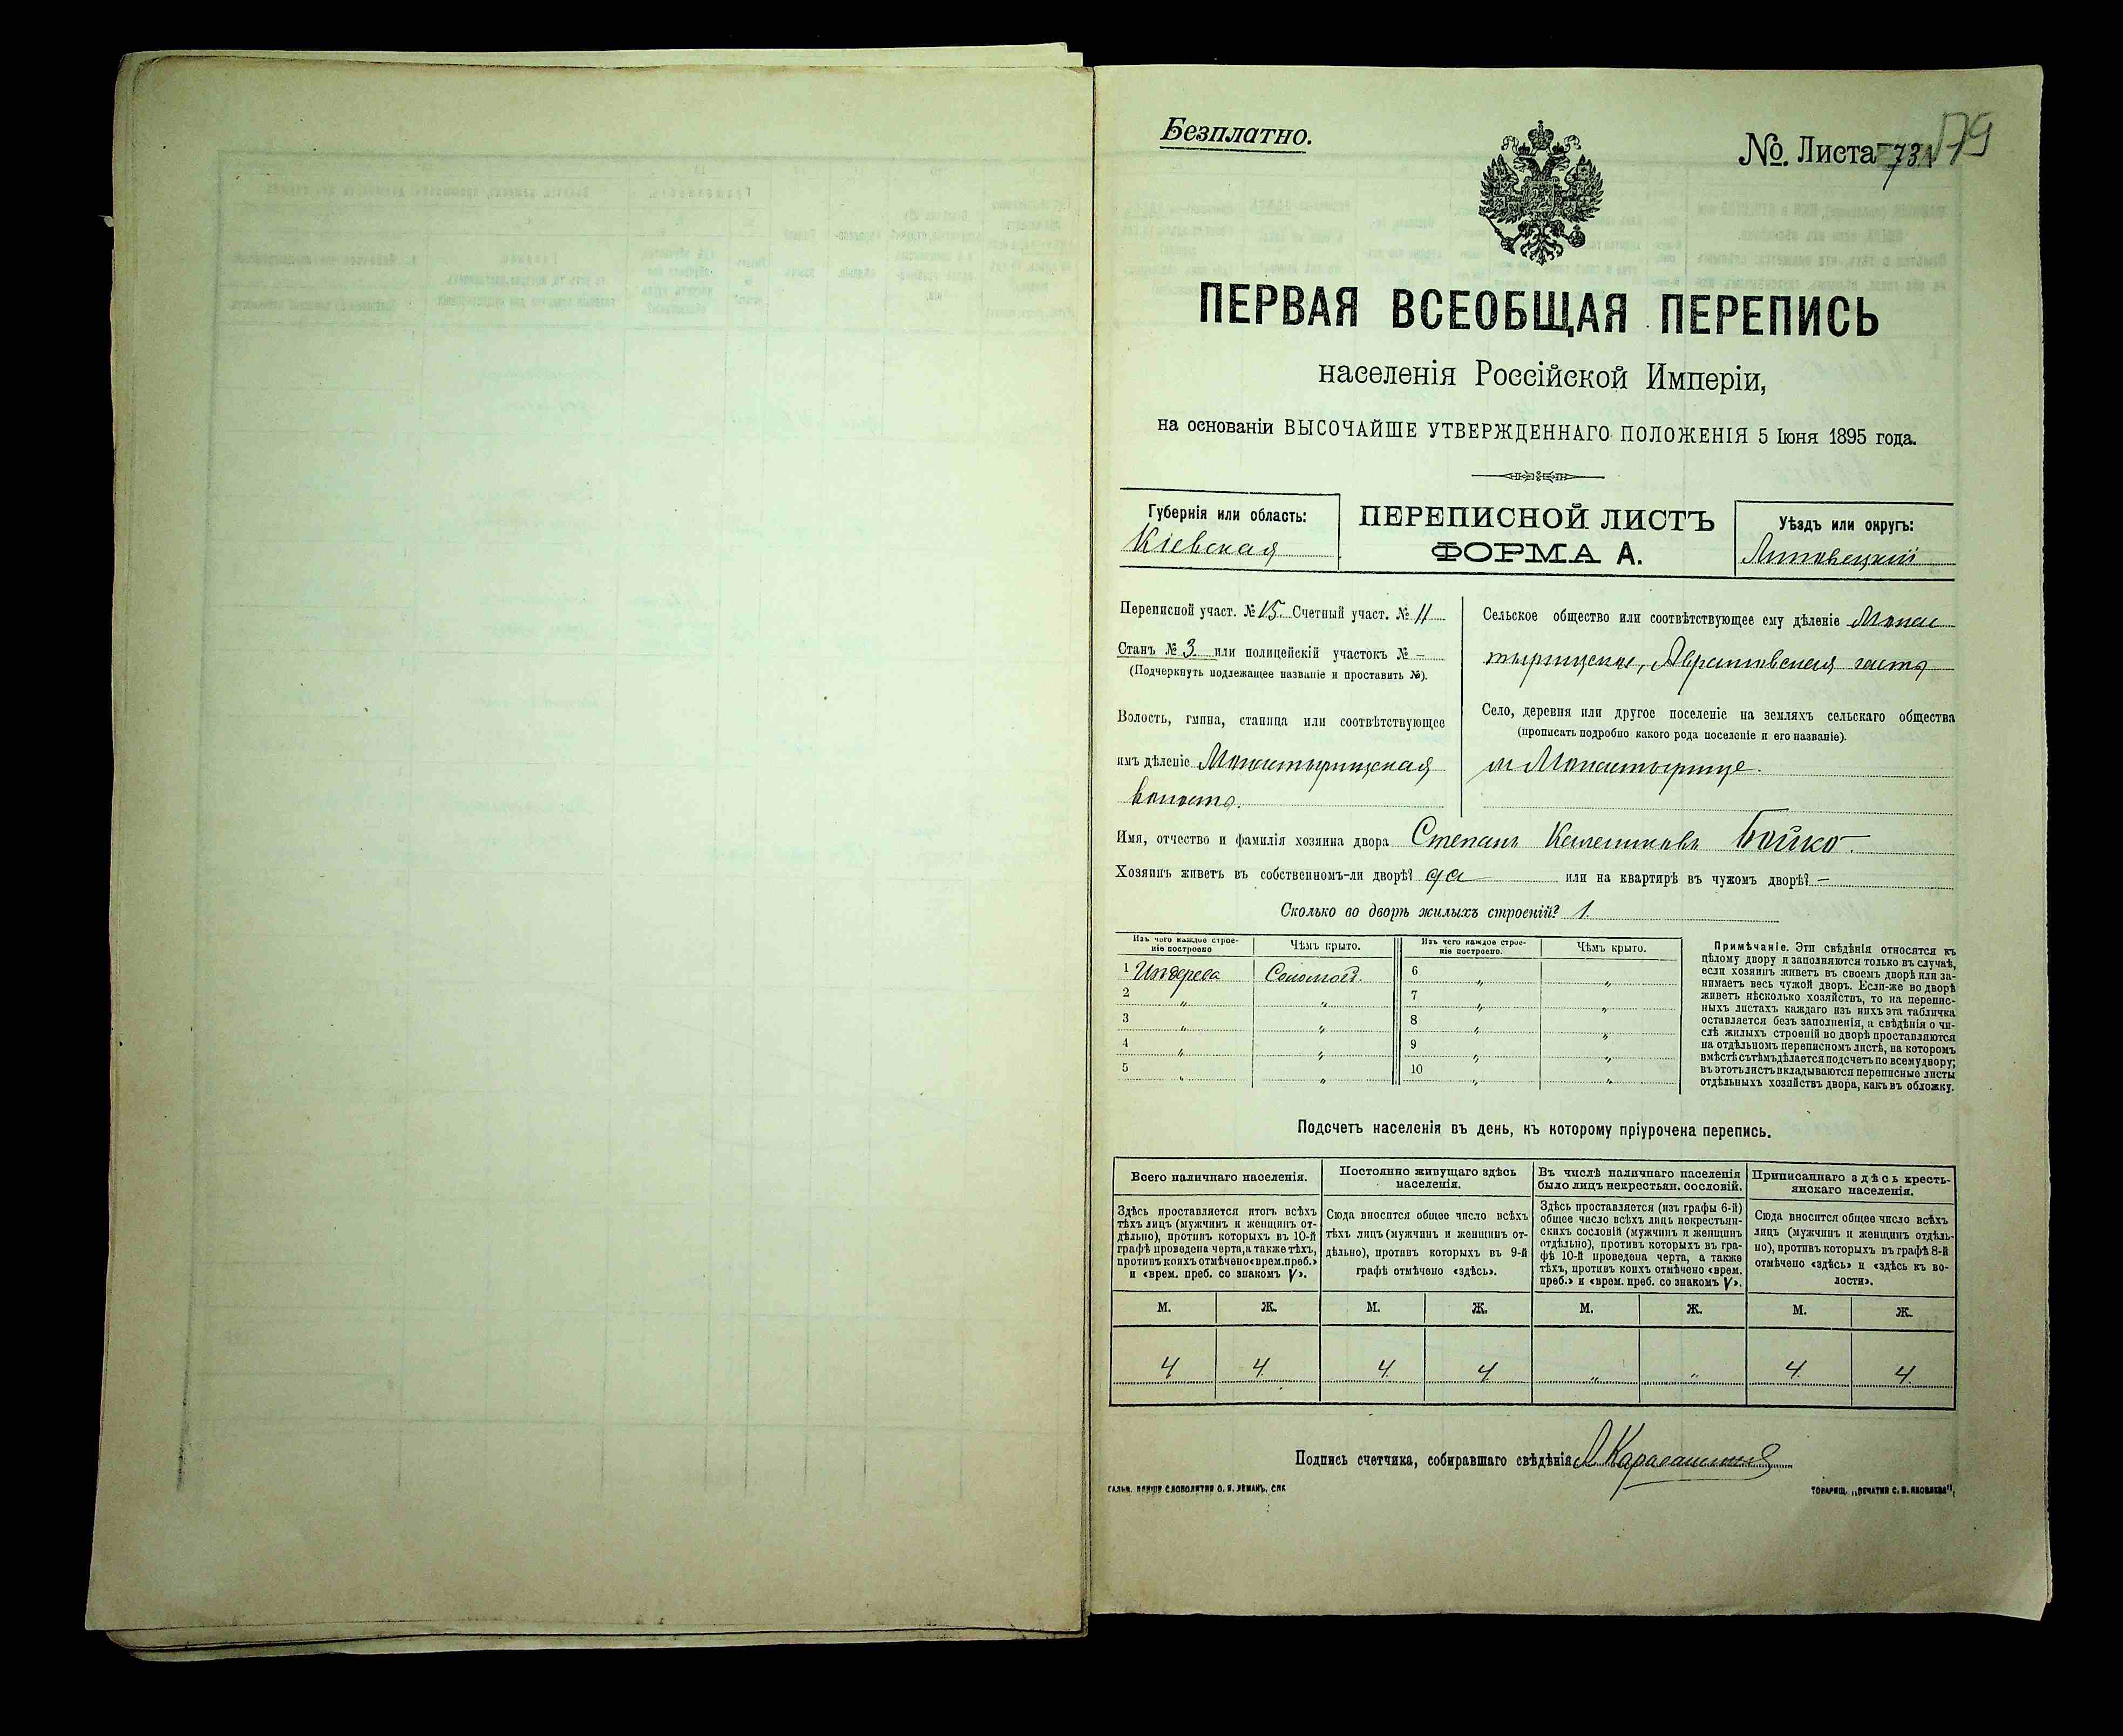 Безплатно.
№. Листа 73 179
ПЕРВАЯ ВСЕОБЩАЯ ПЕРЕПИСЬ
населенія Россійской Имперіи,
на основаніи ВЫСОЧАЙШЕ УТВЕРЖДЕННАГО ПОЛОЖЕНІЯ 5 Іюня 1895 года.
Губернія или область:
Кіевская
ПЕРЕПИСНОЙ ЛИСТЪ
ФОРМА А.
Уѣздъ или округъ:
Липовецкій
Переписной участ. № 15. Счетный участ. № 11
Станъ № 3. или полицейскій участокъ № -
(Подчеркнуть подлежащее названіе и проставить №).
Волость, гмина, станица или соотвѣтствующее
имъ дѣленіе Монастырищская
волость.
Сельское общество или соотвѣтствующее ему дѣленіе Монас
тырищское, Авратовская часть
Село, деревня или другое поселеніе на земляхъ сельскаго общества
(прописать подробно какого рода поселеніе и его названіе).
м Монастырище.
Имя, отчество и фамилія хозяина двора Степанъ Бойко.
Хозяинъ живетъ въ собственномъ-ли дворѣ? да или на квартирѣ въ чужомъ дворѣ? –
Сколько во дворѣ жилыхъ строеній? 1.
Изъ чего каждое строе-
ніе построено
Чѣмъ крыто.
Изъ чего каждое строе-
ніе построено.
Чѣмъ крыто.
1 Издерева Соломой. 6 " "
2 " " 7 " "
3 " " 8 " "
4 " " 9 " "
5 " " 10 " "
Примѣчаніе. Эти свѣдѣнія относятся къ
цѣлому двору и заполняются только въ случаѣ,
если хозяинъ живетъ въ своемъ дворѣ или за-
нимаетъ весь чужой дворъ. Если-же во дворѣ
живетъ нѣсколько хозяйствъ, то на перепис-
ныхъ листахъ каждаго изъ нихъ эта табличка
оставляется безъ заполненія, а свѣдѣнія о чи-
слѣ жилыхъ строеній во дворѣ проставляются
на отдѣльномъ переписномъ листѣ, на которомъ
вмѣстѣ съ тѣмъ дѣлается подсчетъ по всему двору;
въ этотъ листъ вкладываются переписные листы
отдѣльныхъ хозяйствъ двора, какъ въ обложку.
Подсчетъ населенія въ день, къ которому пріурочена перепись.
Всего наличнаго населенія.
Здѣсь проставляется итогъ всѣхъ
тѣхъ лицъ (мужчинъ и женщинъ от-
дѣльно), противъ которыхъ въ 10-й
графѣ проведена черта, а также тѣхъ,
противъ коихъ отмѣчено «врем. преб.»
и «врем. преб. со знакомъ V».
Постоянно живущаго здѣсь
населенія.
Сюда вносится общее число всѣхъ
тѣхъ лицъ (мужчинъ и женщинъ от-
дѣльно), противъ которыхъ въ 9-й
графѣ отмѣчено «здѣсь».
Въ числѣ наличнаго населенія
было лицъ некрестьян. сословій.
Здѣсь проставляется (изъ графы 6-й)
общее число всѣхъ лицъ некрестьян-
скихъ сословій (мужчинъ и женщинъ
отдѣльно), противъ которыхъ въ гра-
фѣ 10-й проведена черта, а также
тѣхъ, противъ коихъ отмѣчено «врем.
преб.» и «врем. преб. со знакомъ V».
Приписаннаго здѣсь кресть-
янскаго населенія.
Сюда вносится общее число всѣхъ
лицъ (мужчинъ и женщинъ отдѣль-
но), противъ которыхъ въ графѣ 8-й
отмѣчено «здѣсь» и «здѣсь къ во-
лости».
М. Ж. М. Ж. М. Ж. М. Ж.
4 4. 4. 4 " " 4. 4.
Подпись счетчика, собиравшаго свѣдѣнія
ТОВАРИЩ. „ПЕЧАТНЯ С. П. ЯКОВЛЕВА"